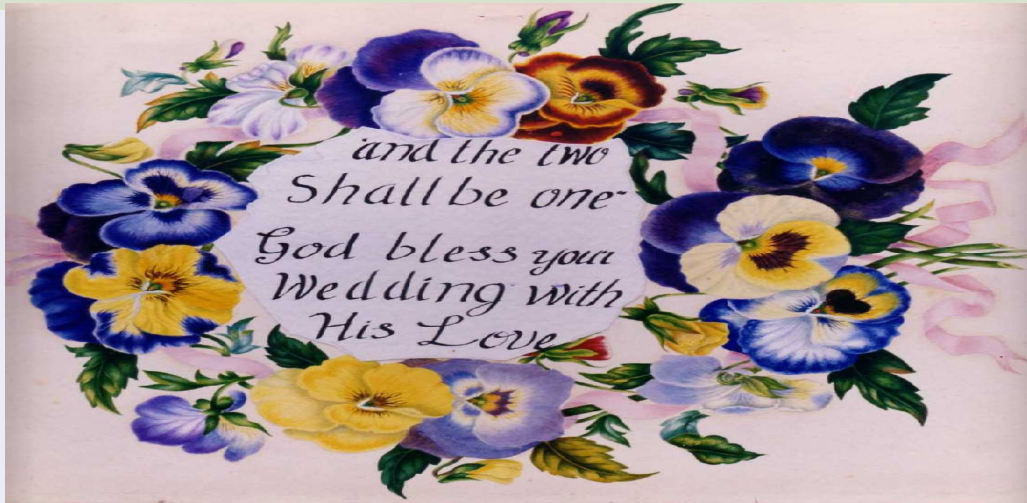 and the two
Shall be one
God bless your
Wedding with
His Love